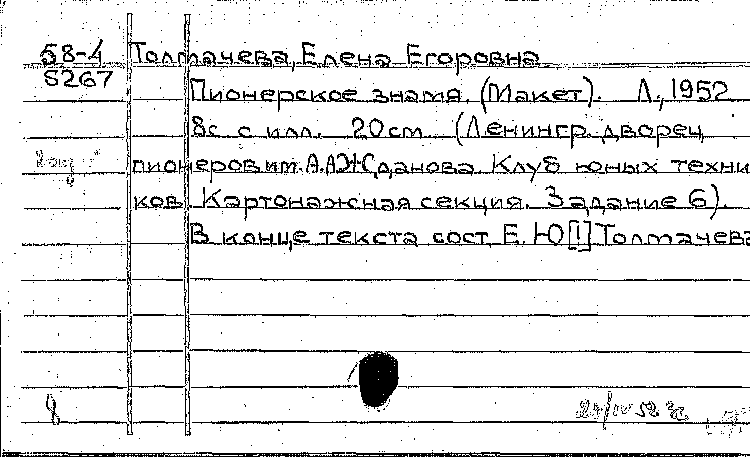 58-4 Толмачева, Елена Егоровна
5267
Пионерское знамя. (Макет). Л., 1952
8с. с илл. 20см (Ленингр. дворец
пионеров им. А.А.Жданова. Клуб юных техни
ков. Картонажная секция. Задание 6).
В конце текста сост. Е. Ю[!] Толмачева
8